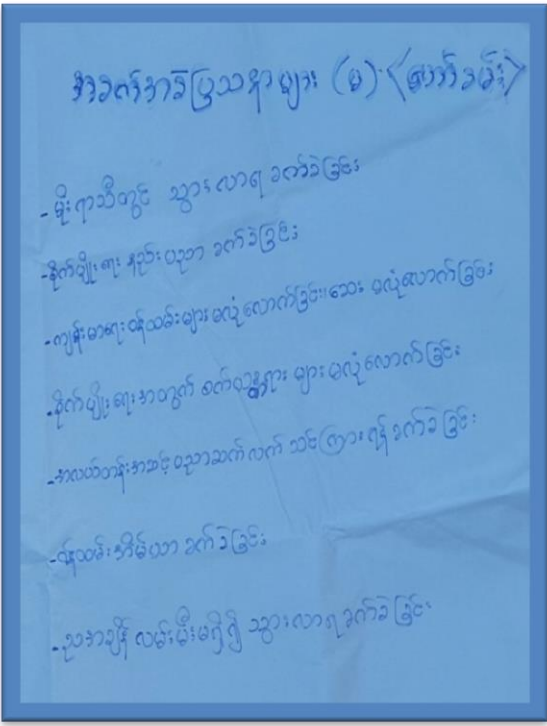 အခက်အခဲပြဿနာများ (မ) <တော်ခမ်း>
- မိုးရာသီတွင် သွားလာရခက်ခဲခြင်း
- စိုက်ပျိုးရေး နည်းပညာ ခက်ခဲခြင်း
- ကျန်းမာရေးဝန်ထမ်းများမလုံလောက်ခြင်း၊ဆေး မလုံလောက်ခြင်း
- စိုက်ပျိုးရေးအတွက် စက်ယန္တရား များမလုံလောက်ခြင်း
- အလယ်တန်းအဆင့်ပညာဆက်လက် သင်ကြားရန် ခက်ခဲခြင်း
- ဝန်ထမ်းအိမ်ယာ ခက်ခဲခြင်း
- ညအချိန် လမ်းမီးမရှိ၍ သွားလာရခက်ခဲခြင်း